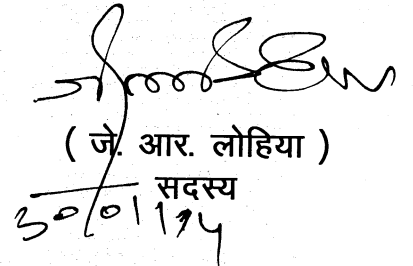 ( जे. आर. लोहिया )
सदस्य
30/01/14